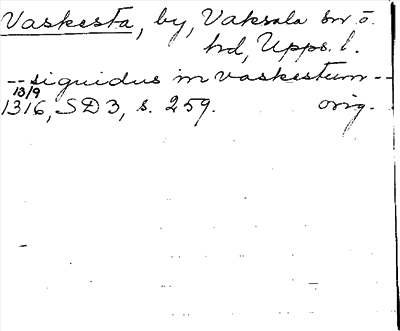 Vaskesta, by, Vaksala sn. ö.
hd, Upps. l.
-- siguidus in vaskestum --
13/9
1316, SD 3, s. 259. orig.